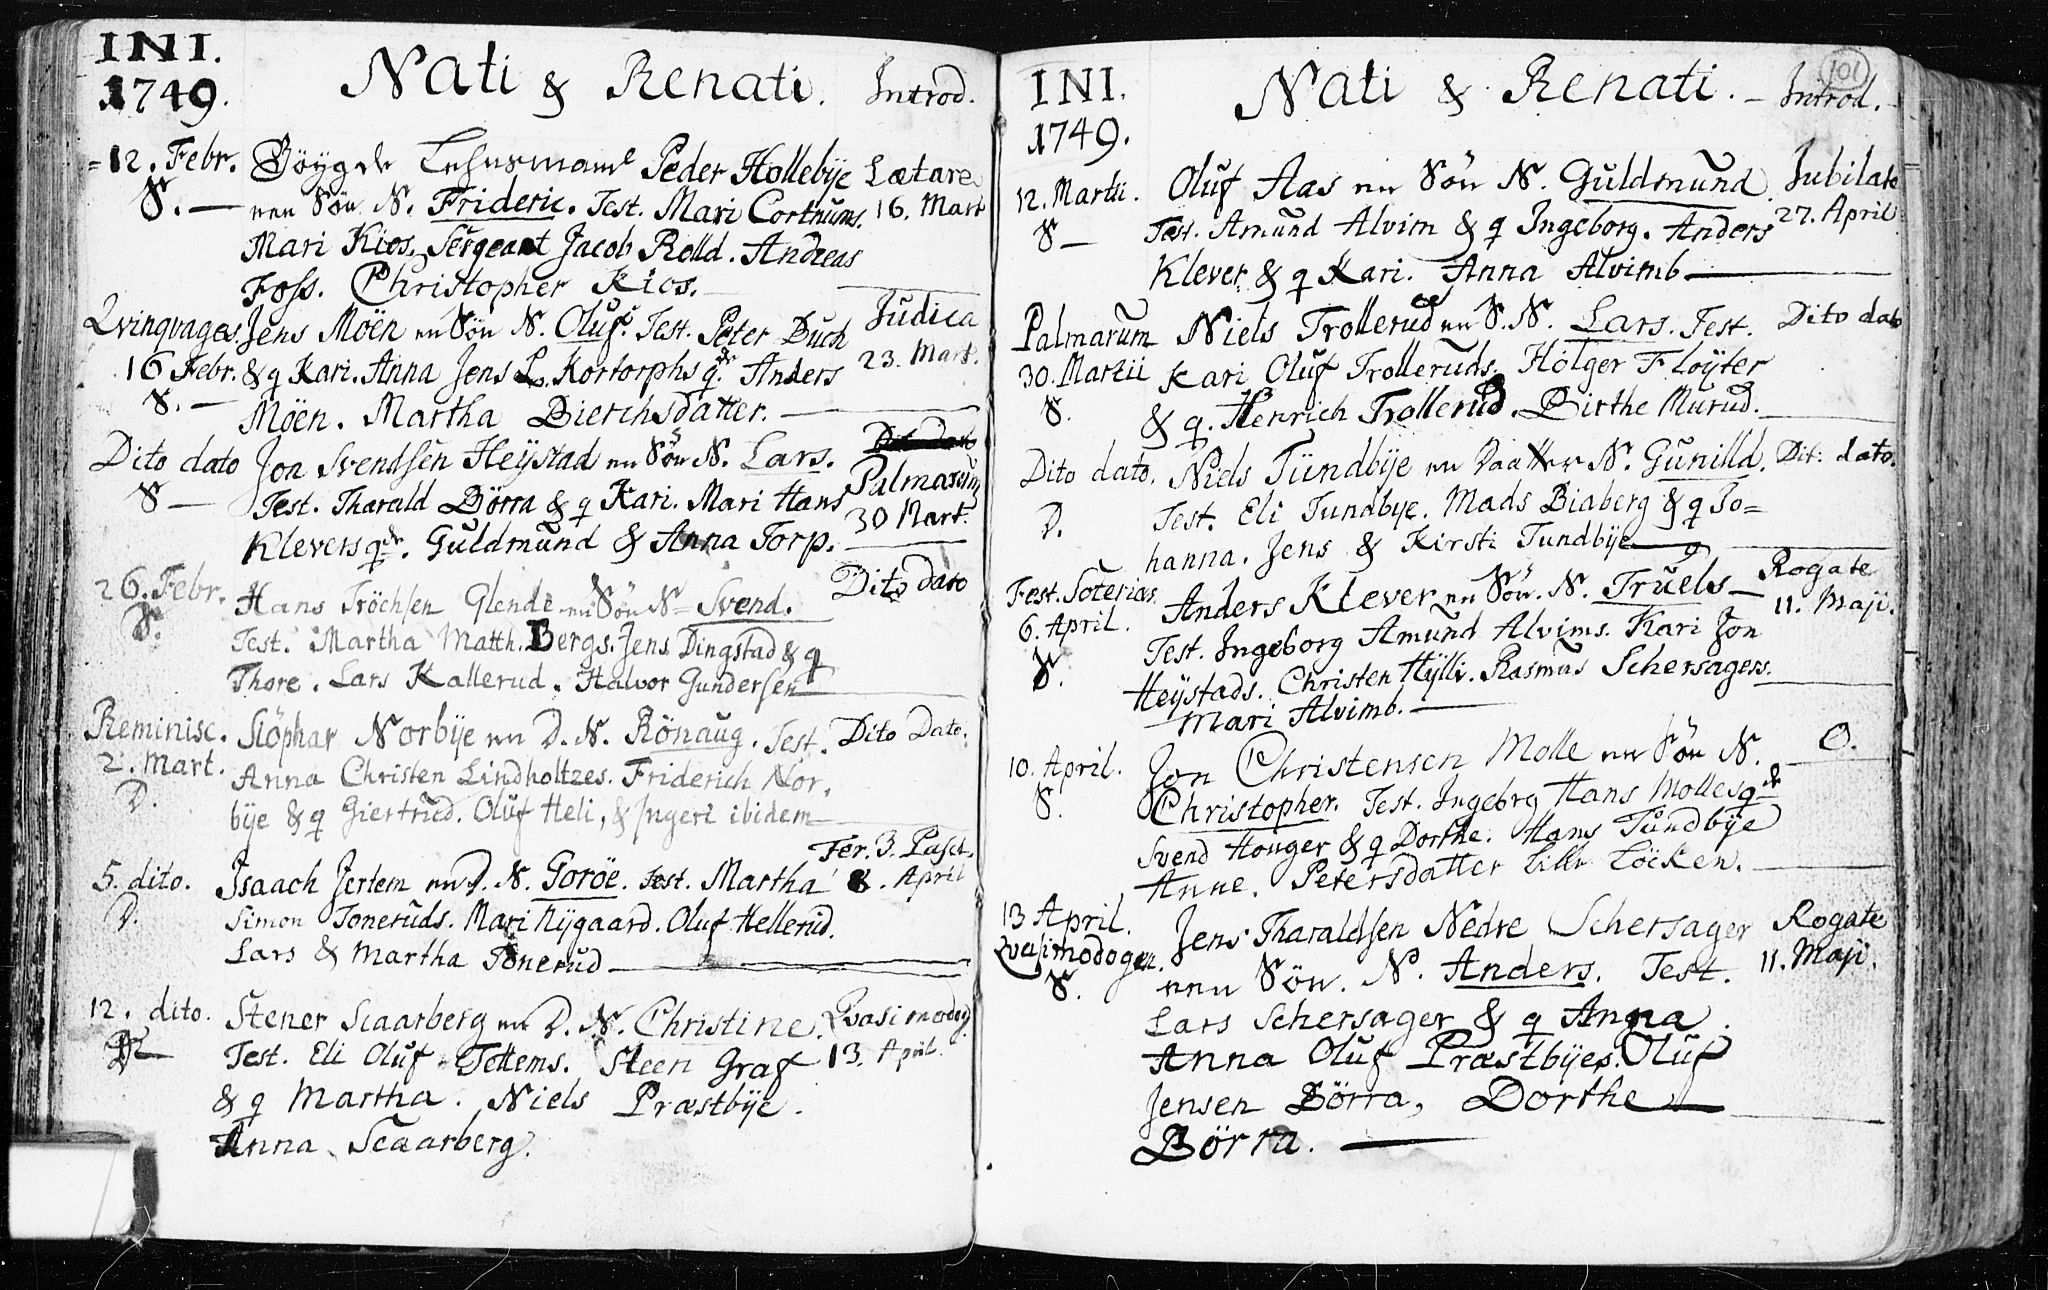 INI.
1749.
Nati & Renati.
Introd.
12. Febr. Böygde Lehnsmand Peder Hollebÿe Lætare
S. — een Sön N. Frideric. Test. Mari Cortnums. 16. Mart
Mari Kios. Sergeant Jacob Rolld. Andreas
Foss. Christopher Kios.
Qvinqvages. Jens Möen en Sön N. Oluf. Test. Peter Buch Judica
16 Febr. & q Kari. Anna Jens L. Kortorphs qde. Anders 23. Mart.
S. — Möen. Martha Dierichsdatter. —
Dito dato Jon Svendsen Heÿstad en Sön N. Lars. Palmarum
S — Test. Tharald Börra & q Kari. Mari Hans 30 Mart.
Klevers qde. Guldmund & Anna Torp.
26. Febr. Hans Tröchsen Glende en Sön N. Svend. Dito dato
S. Test. Martha Matth. Bergs. Jens Dingstad & q
Thore. Lars Kallerud. Halvor Gundersen
Reminisc. Slöphar Norbÿe en D. N. Rönaug. Test. Dito Dato.
2. Mart. Anna Christen Lindholtzes. Friderich Nor-
D. bÿe & q Giertrud. Oluf Heli, & Ingeri ibidem
Fer. 3. Pasch.
5. dito. Isaach Jertem en D. N. Goröe. Test. Martha 8. April
D. Simon Toneruds. Mari Nÿgaard. Oluf Hellerud.
Lars & Martha Tonerud —
12. dito. Stener Scaarberg en D. N. Christine. Qvasimodog.
D — Test. Eli Oluf Tettems. Steen Graf 13. April.
& q Martha. Niels Præstbÿe.
Anna Scaarberg.
101
INI.
1749.
Nati & Renati. — Introd.
12. Martii. Oluf Aas en Sön N. Guldmund. Jubilate
S — Test. Amund Alvim & q Ingeborg. Anders 27. April
Klever & q Kari. Anna Alvimb —
Palmarum Niels Trollerud en S. N. Lars. Test. Dito dato
30. Martii Kari Oluf Trolleruds. Holger Floÿter
S. & q. Henrich Trollerud. Birthe Murud.
Dito dato. Niels Tundbÿe en Daatter N. Gunild. Dit: dato.
D. Test. Eli Tundbye. Mads Biaberg & q Jo=
hanna. Jens & Kirsti Tundbÿe —
Fest. Soterias Anders Klever en Sön. N. Truels — Rogate
6. April. Test. Ingeborg Amund Alvims. Kari Jon 11. Maji.
S. Heÿstads. Christen Hÿlli. Rasmus Schersagers.
Mari Alvimb. —
10. April. Jon Christensen Molle en Sön N. O.
S. Christopher. Test. Ingebrg Hans Molles qde
Svend Houger & q Dorthe. Hans Tundbÿe
Anne. Petersdatter Lille Löcken.
13 April. Jens Tharaldsen Nedre Schersager Rogate
Qvasimodogen. een Sön. N. Anders. Test. 11. Maji.
S. Lars Schersager & q Anna.
Anna Oluf Præstbÿes. Oluf
Jensen Börra, Dorthe —
Börra. —